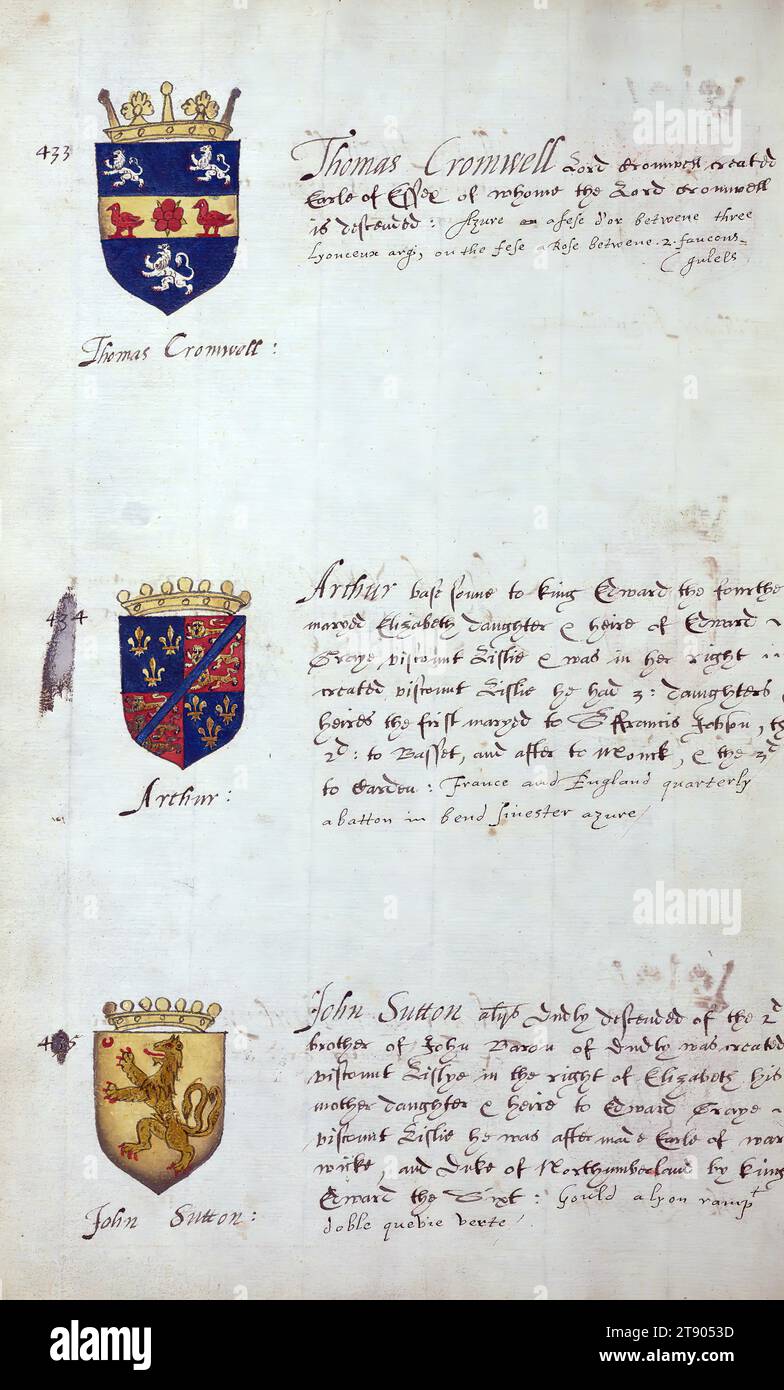 433
Thomas Cromwell Lord Cromwell, created
Earle of Essex of whome the Lord Cromwell
is descended: Azure a fese d'or betwene three
Lyonceux arg, on the fese a Rose betwene .2. faucons=
gulels
Thomas Cromwell:
434
Arthur base sonne to king Edward the fourthe
maryed Elizabeth daughter & heire of Edward
Graye viscount Lislie & was in her right
created viscount Lislie he had 3: daughters
heires the first maryed to Sr ffrancis Jobson, th
2d: to Basset, and after to Monck, & the 3d
to : France and England quarterly
a batton in bend sinester azure/
Arthur:
435
John Sutton alijs Dudly descended of the 2d
brother of John Baron of Dudly was created
viscount Lislye in the right of Elizabeth his
mother daughter & heire to Edward Graye
viscount Lislie he was after made Earle of war
wicke, and Duke of Northumberland by king
Edward the Sixt: Gould a lyon rampt
doble quevie verte
John Sutton:
alamy
Image ID: 2T9053D
www.alamy.com